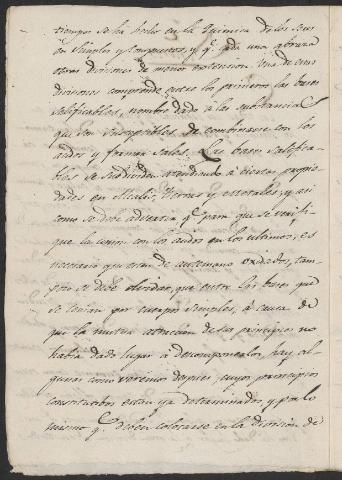 tiempo se ha hecho en la Quimica de los Cuerpos
en Simples y Compuestos, y q.e cada uno abraza
otras divisiones de menor extension. Una de estas
divisiones comprende entre los primeros las bases
salificables, nombre dado á las substancias
que son susceptibles de combinarse con los
acidos y formar Sales. Las bases salifica-
bles se subdividen atendiendo á ciertas propie-
dades en Alcalis, Tierras y metales, y asi
como se debe advertir q.e para que se verifi-
que la union con los acidos en los ultimos, es
necesario que esten de antemano oxidados, tam-
poco se debe olvidar, que entre las bases que
se tenian por cuerpos simples, á causa de
que la mutua atraccion de sus principios no
habia dado lugar á descomponerlos, hay al-
gunos como veremos despues cuyos principios
constitutibos estan ya determinados, y por lo
mismo q.e deben colocarse en la division de